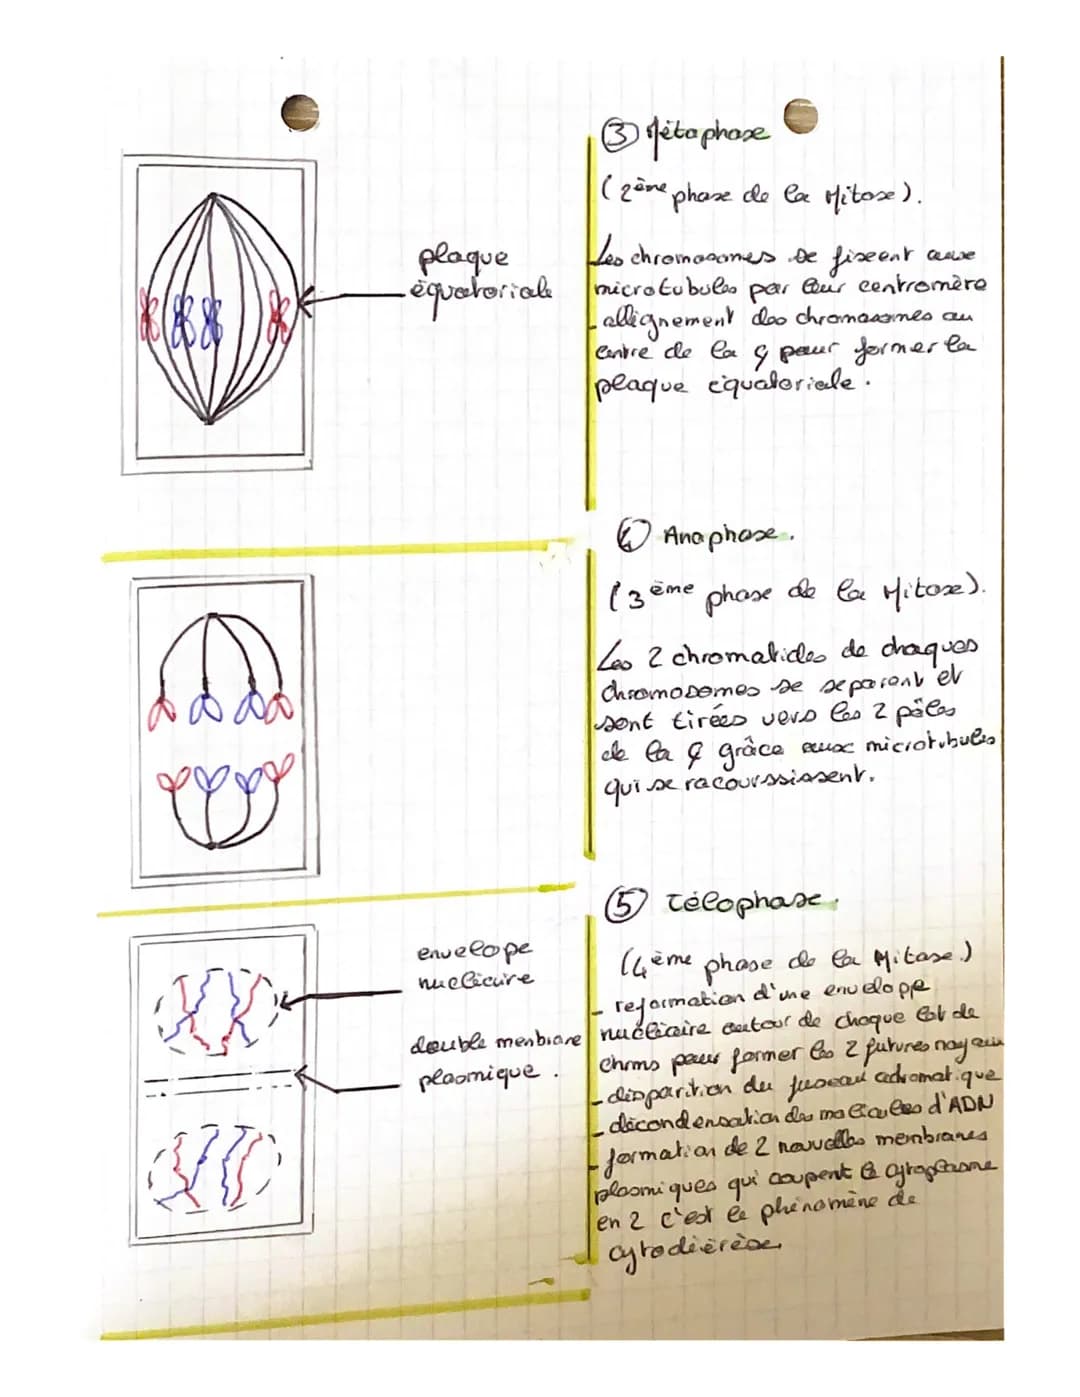 ③ Métaphase
(2ème phase de la Mitose).
plaque
équatoriale
Les chromosomes se fixent aux
microtubules par leur centromère
- allignement des chromosomes au
centre de la ç pour former la
plaque équatoriale.
④ Anaphase.
(3ème phase de la Mitose).
Les 2 chromatides de chaques
chromosomes se séparent et
sont tirées vers les 2 pôles
de la ç grâce aux microtubules
qui se racourssissent.
⑤ Télophase.
(4ème phase de la Mitose.)
envelope
nucléaire
double menbrane
plasmique.
- reformation d'une enveloppe
nucléaire autour de chaque lot de
chrms pour former les 2 futures noyaux
- disparition du fuseau achromatique
- décondensation des molécules d'ADN
- formation de 2 nouvelles membranes
plasmiques qui coupent le cytoplasme
en 2 c'est le phénomène de
cytodiérèse.